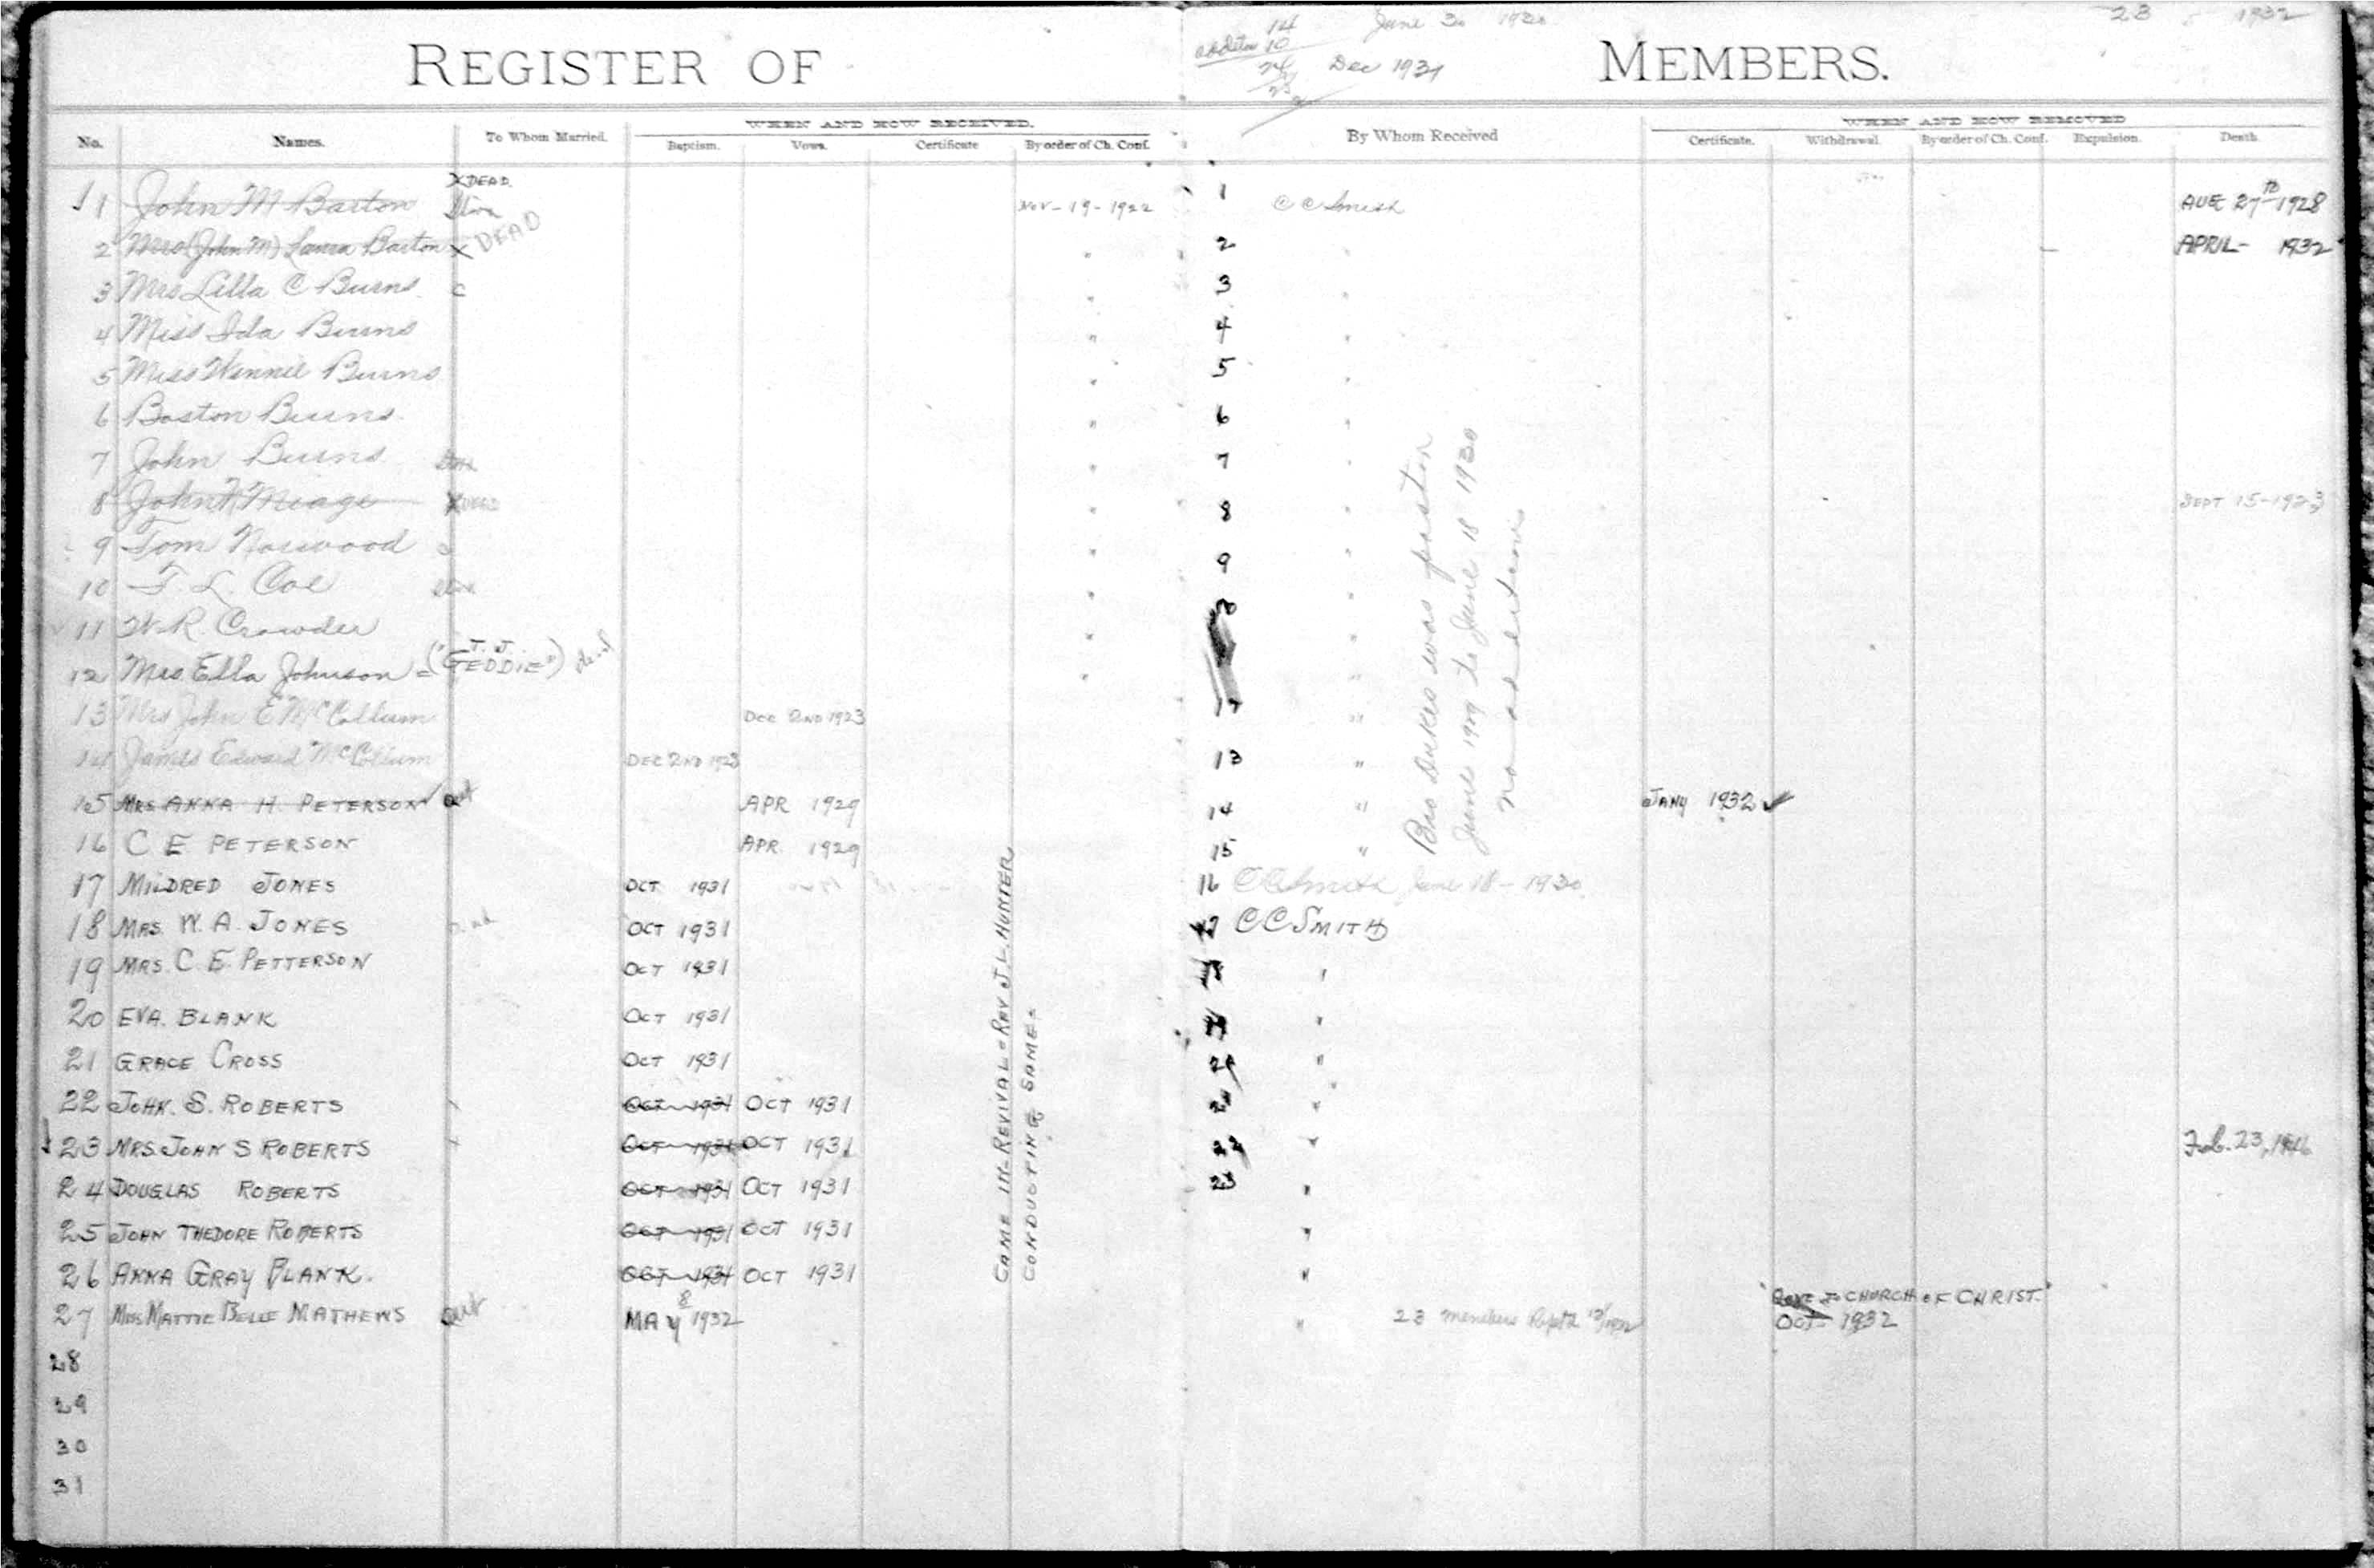 14 June 30 1930 23 1932
10
REGISTER OF Dec 1931 MEMBERS.
24
No. Names. To Whom Married. WHEN AND HOW RECEIVED. By Whom Received WHEN AND HOW REMOVED
Baptism. Vows. Certificate By order of Ch. Conf. Certificate. Withdrawal By order of Ch. Conf. Expulsion. Death.
X DEAD.
1 John M Barton Nov-19-1922 1 C C Smith AUG 27th 1928
2 Mrs (John M) Laura Barton X DEAD " 2 " APRIL - 1932
3 Mrs Lilla C Burns c " 3 "
4 Miss Ida Burns " 4 "
5 Miss Winnie Burns " 5 "
6 Boston Burns " 6 "
7 John Burns " 7 "
8 John Miage X DEAD " 8 " SEPT 15-1923
9 Tom Norwood " 9 "
10 F. L. Coe " 10 "
11 W. R. Crowder " "
12 Mrs. Ella Johnson = ("T. J. GEDDIE") dead " "
13 Mrs John E McCollum DEC 2ND 1923 "
14 James Edward McCollum DEC 2ND 1923 13 "
15 MRS ANNA H. PETERSON out APR 1929 14 " JANY 1932 ✓
16 C E PETERSON APR 1929 15 "
17 MILDRED JONES OCT 1931 16 C C Smith June 18 - 1930
18 MRS. W. A. JONES OCT 1931 17 C C SMITH
19 MRS. C. E. PETTERSON OCT 1931 18 "
20 EVA. BLANK OCT 1931 19 "
21 GRACE CROSS OCT 1931 "
22 JOHN. S. ROBERTS OCT 1931 OCT 1931 "
23 MRS. JOHN S ROBERTS OCT 1931 OCT 1931 22 " Feb. 23, 1946
24 DOUGLAS ROBERTS OCT 1931 OCT 1931 23 "
25 JOHN THEDORE ROBERTS OCT 1931 OCT 1931 "
26 ANNA GRAY BLANK. OCT 1931 OCT 1931 "
27 Mrs. MATTIE BELLE MATHEWS out MAY 8 1932 " 23 members "GONE TO CHURCH OF CHRIST."
OCT - 1932
28
29
30
31
CAME IN REVIVAL = REV J. L. HUNTER
CONDUCTING SAME =
Bro Dukes was pastor
June 1929 to June 18 1930
no additions